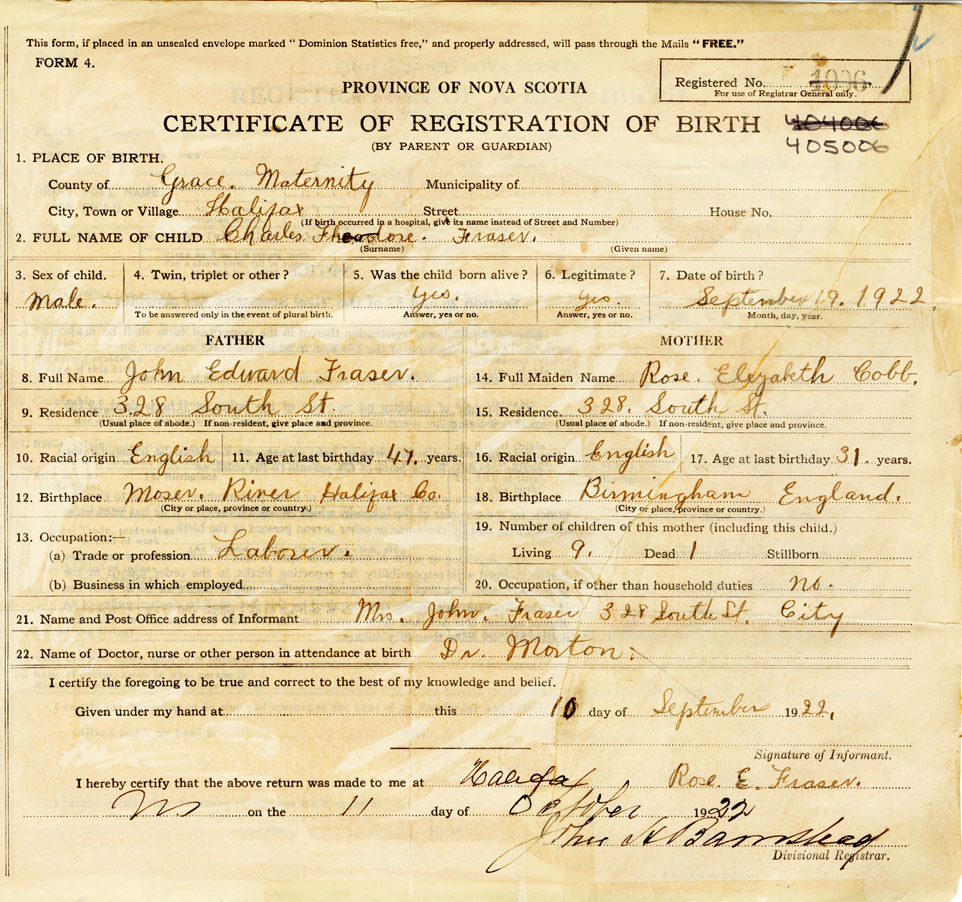 This form, if placed in an unsealed envelope marked “ Dominion Statistics free,” and properly addressed, will pass through the Mails “FREE.”
FORM 4.
Registered No. 1006
For use of Registrar General only.
PROVINCE OF NOVA SCOTIA
CERTIFICATE OF REGISTRATION OF BIRTH 404006
(BY PARENT OR GUARDIAN) 405006
1. PLACE OF BIRTH.
County of Grace. Maternity Municipality of
City, Town or Village Halifax Street House No.
(If birth occurred in a hospital, give its name instead of Street and Number)
2. FULL NAME OF CHILD Charles Theodore. Fraser.
(Surname) (Given name)
3. Sex of child. 4. Twin, triplet or other? 5. Was the child born alive? 6. Legitimate? 7. Date of birth?
Male. Yes. Yes. September 19. 1922
To be answered only in the event of plural birth. Answer, yes or no. Answer, yes or no. Month, day, year.
FATHER MOTHER
8. Full Name John Edward Fraser. 14. Full Maiden Name Rose. Elizabeth Cobb.
9. Residence 328 South St. 15. Residence. 328. South St.
(Usual place of abode.) If non-resident, give place and province. (Usual place of abode.) If non-resident, give place and province.
10. Racial origin English 11. Age at last birthday 47. years. 16. Racial origin English 17. Age at last birthday 31. years.
12. Birthplace Moser. River Halifax Co. 18. Birthplace Birmingham England.
(City or place, province or country.) (City or place, province or country.)
13. Occupation:— 19. Number of children of this mother (including this child.)
(a) Trade or profession Laborer. Living 9. Dead 1 Stillborn
(b) Business in which employed 20. Occupation, if other than household duties no.
21. Name and Post Office address of Informant Mrs. John. Fraser 328 South St. City
22. Name of Doctor, nurse or other person in attendance at birth Dr. Morton.
I certify the foregoing to be true and correct to the best of my knowledge and belief.
Given under my hand at this 10 day of September 1922,
Signature of Informant.
I hereby certify that the above return was made to me at Halifax Rose. E. Fraser.
NS on the 11 day of October 1922
John A Barnstead
Divisional Registrar.